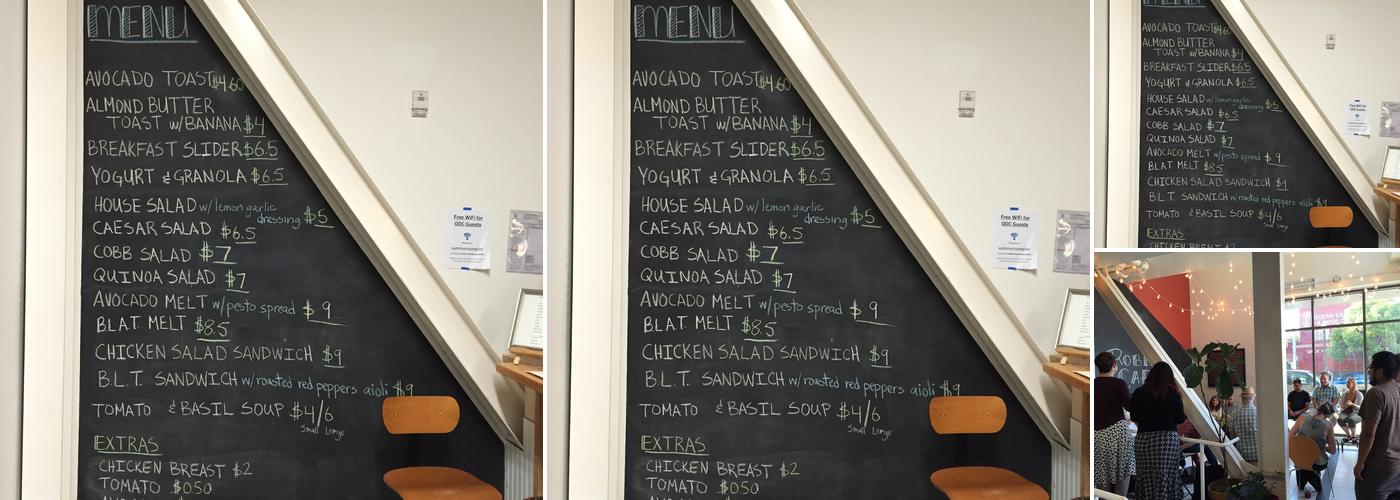 MENU
AVOCADO TOAST $4.60
ALMOND BUTTER
TOAST w/BANANA $4
BREAKFAST SLIDER $6.5
YOGURT & GRANOLA $6.5
HOUSE SALAD w/ lemon garlic
dressing $5
CAESAR SALAD $6.5
COBB SALAD $7
QUINOA SALAD $7
AVOCADO MELT w/pesto spread $9
BLAT MELT $8.5
CHICKEN SALAD SANDWICH $9
B.L.T. SANDWICH w/roasted red peppers aioli $9
TOMATO & BASIL SOUP $4/6
Small Large
EXTRAS
CHICKEN BREAST $2
TOMATO $0.50
Free WiFi for
ODC Guests
summersampler
MENU
AVOCADO TOAST $4.60
ALMOND BUTTER
TOAST w/BANANA $4
BREAKFAST SLIDER $6.5
YOGURT & GRANOLA $6.5
HOUSE SALAD w/ lemon garlic
dressing $5
CAESAR SALAD $6.5
COBB SALAD $7
QUINOA SALAD $7
AVOCADO MELT w/pesto spread $9
BLAT MELT $8.5
CHICKEN SALAD SANDWICH $9
B.L.T. SANDWICH w/roasted red peppers aioli $9
TOMATO & BASIL SOUP $4/6
Small Large
EXTRAS
CHICKEN BREAST $2
TOMATO $0.50
Free WiFi for
ODC Guests
summersampler
MENU
AVOCADO TOAST $4.60
ALMOND BUTTER
TOAST w/BANANA $4
BREAKFAST SLIDER $6.5
YOGURT & GRANOLA $6.5
HOUSE SALAD w/ lemon garlic
dressing $5
CAESAR SALAD $6.5
COBB SALAD $7
QUINOA SALAD $7
AVOCADO MELT w/pesto spread $9
BLAT MELT $8.5
CHICKEN SALAD SANDWICH $9
B.L.T. SANDWICH w/roasted red peppers aioli $9
TOMATO & BASIL SOUP $4/6
Small Large
EXTRAS
CHICKEN BREAST $2
Free WiFi for
ODC Guests